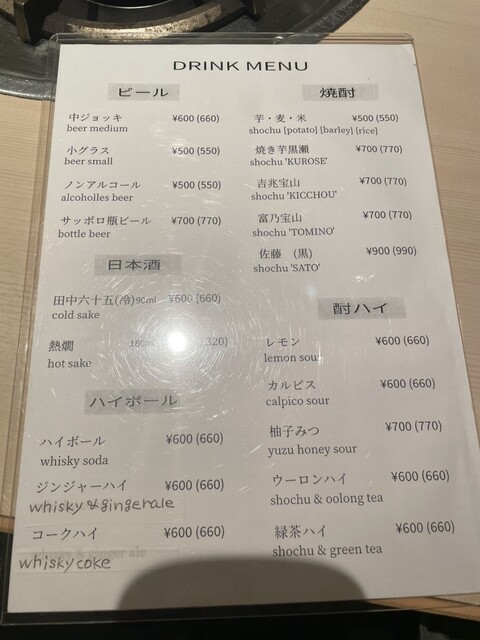 DRINK MENU
ビール
中ジョッキ ¥600 (660)
beer medium
小グラス ¥500 (550)
beer small
ノンアルコール ¥500 (550)
alcoholles beer
サッポロ瓶ビール ¥700 (770)
bottle beer
日本酒
田中六十五(冷)90ml ¥600 (660)
cold sake
熱燗 180m 320)
hot sake
ハイボール
ハイボール ¥600 (660)
whisky soda
ジンジャーハイ ¥600 (660)
whisky & gingerale
コークハイ ¥600 (660)
whisky coke
焼酎
芋・麦・米 ¥500 (550)
shochu [potato] [barley] [rice]
焼き芋黒瀬 ¥700 (770)
shochu 'KUROSE'
吉兆宝山 ¥700 (770)
shochu 'KICCHOU'
富乃宝山 ¥700 (770)
shochu 'TOMINO'
佐藤 (黒) ¥900 (990)
shochu 'SATO'
酎ハイ
レモン ¥600 (660)
lemon sour
カルピス ¥600 (660)
calpico sour
柚子みつ ¥700 (770)
yuzu honey sour
ウーロンハイ ¥600 (660)
shochu & oolong tea
緑茶ハイ ¥600 (660)
shochu & green tea